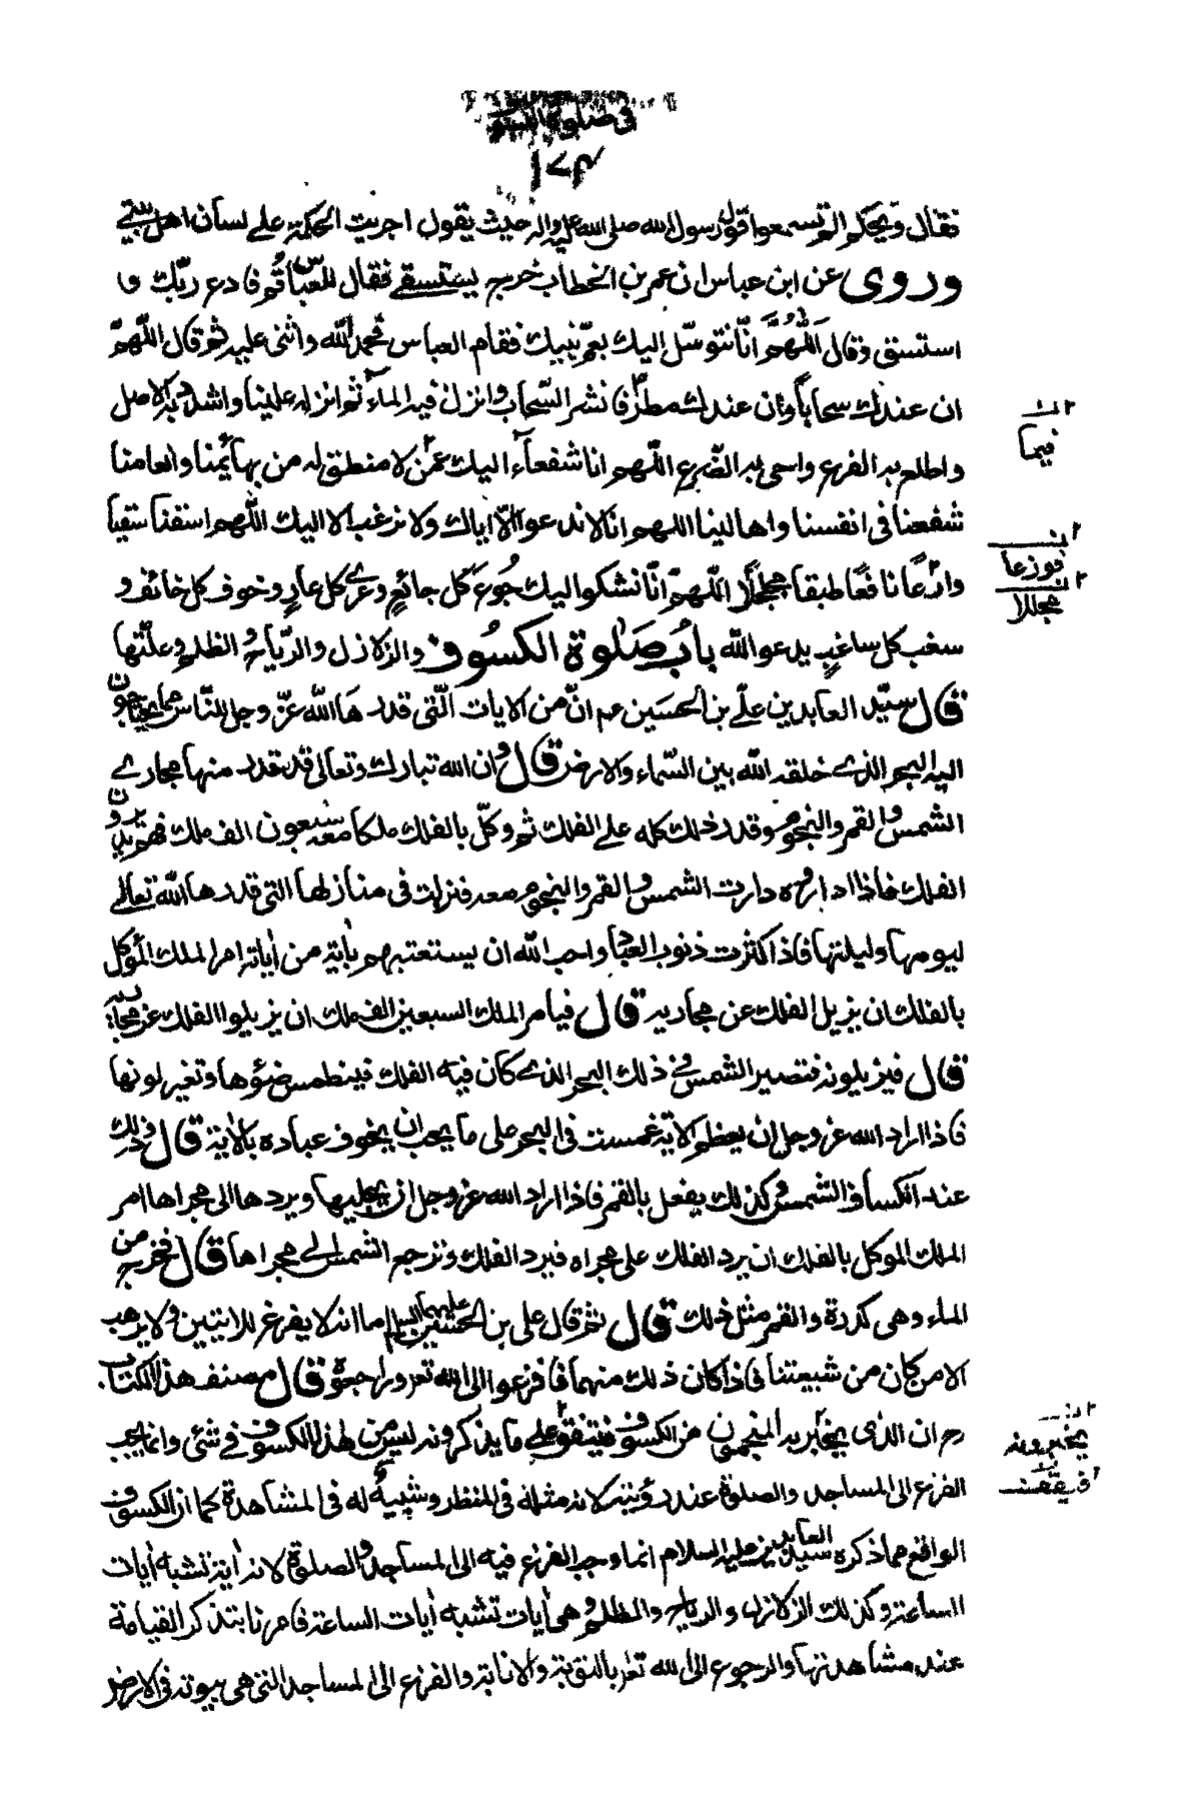 في صلوة
١٧٣
فقال ويحكم الم تسمعوا قول رسول الله صلى الله عليه واله حيث يقول اجريت الحكمة على لسان اهل بيتي
وروى عن ابن عباس ان عمر بن الخطاب خرج يستسقي فقال للعبّاس قُم فادع ربّك و
استسق وقال اَللّهُمَّ انّا نتوسّل اليك بعمّ نبيك فقام العباس فحمد الله واثنى عليه ثم قال اللّهمّ
ان عندك سحاباً وان عندك مطراً فانشر السّحاب وانزل فيه الماء ثم انزله علينا واشدد به الاصل
واطلع به الفرع واحى به الضّرع اللّهم انا شفعاء اليك عمّن لا منطق له من بهائمنا وانعامنا
شفعنا في انفسنا واهالينا اللهم انّا لا ندعوا الّا اياك ولا نرغب الا اليك اللّهم اسقنا سقيا
وادعًا نافعًا طبقا مجلجلًا اللّهمّ انّا نشكوا اليك جُوعَ كل جائعٍ وعرى كل عارٍ وخوف كل خائف و
سغب كل ساغبٍ يدعو الله باب صلوة الكسوف والزلازل والرّياح والظلم وعلّتها
قال سيّد العابدين عليّ بن الحسين عم انّ من الايات الّتي قدرها الله عزّ وجل للنّاس مما يحتاجون
اليه البحر الذي خلقه الله بين السّماء والارض قال وان الله تبارك وتعالى قد قدر منها مجاري
الشمس والقمر والنجوم وقدر ذلك كله على الفلك ثم وكّل بالفلك ملكا معه سبعون الف ملك فهم يديرون
الفلك فاذا اداروه دارت الشمس والقمر والنجوم معه فنزلت في منازلها التي قدرها الله تعالى
ليومها وليلتها فاذا كثرت ذنوب العباد واحب الله ان يستعتبهم بأية من أياته امر الملك الموكل
بالفلك ان يزيل الفلك عن مجاريه قال فيامر الملك السبعين الف ملك ان يزيلوا الفلك عن مجاريه
قال فيزيلونه فتصير الشمس في ذلك البحر الذي كان فيه الفلك فينطمس ضوؤها وتغير لونها
فاذا اراد الله عز وجل ان يعظم الاية غمست في البحر على ما يحب ان يخوف عباده بالأية قال وذلك
عند انكساف الشمس وكذلك يفعل بالقمر فاذا اراد الله عز وجل ان يجليها ويردها الى مجراها امر
الملك الموكل بالفلك ان يرد الفلك على مجراه فيرد الفلك وترجع الشمس الى مجراها قال فتخرج من
الماء وهى كدرة والقمر مثل ذلك قال ثم قال على بن الحسين عليهما السلام اما انه لا يفرغ للايتين ولا يرهب
الا من كان من شيعتنا فاذا كان ذلك منهما فافزعوا الى الله تعه وراجعوه قال مصنف هذا الكتاب
رح ان الذى يخبر به المنجمون من الكسوف فيتفق على ما يذكرونه ليس من هذا الكسوف في شئ وانما يجب
الفزع الى المساجد والصلوة عند رؤيته لانه مثله في المنظر وشبيه له في المشاهدة كما ان الكسوف
الواقع مما ذكره سيد العابدين عليه السلام انما وجب الفزع فيه الى المساجد والصلوة لانه أية تشبه أيات
الساعة وكذلك الزلازل والرياح والظلم وهى أيات تشبه أيات الساعة فامرنا بتذكر القيامة
عند مشاهدتها والرجوع الى الله تعه بالتوبة والانابة والفزع الى المساجد التي هى بيوته في الارض
فيما
فوزعا
مجللا
يخبرونه
فيتفق